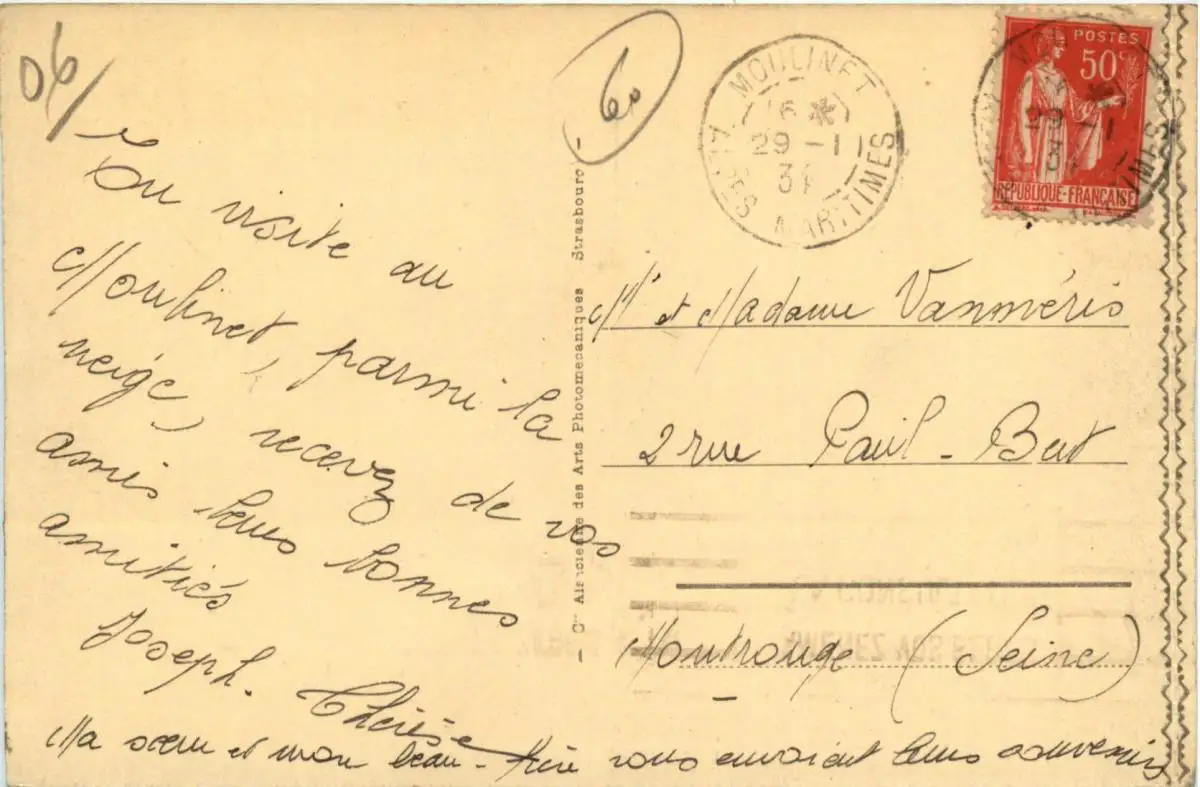 06/
60
MOULINET
16 *
29 - 11
34
ALPES MARITIMES
POSTES
50c
RÉPUBLIQUE-FRANÇAISE
En visite au
Moulinet, parmi la
neige, recevez de vos
amis leurs bonnes
amitiés
Joseph. Thérèse
Ma sœur et mon beau-frère vous envoient leurs souvenirs
Cie Alsacienne des Arts Photomecaniques Strasbourg
Mr et Madame Vanméris
2 rue Paul-Bert
Montrouge (Seine)